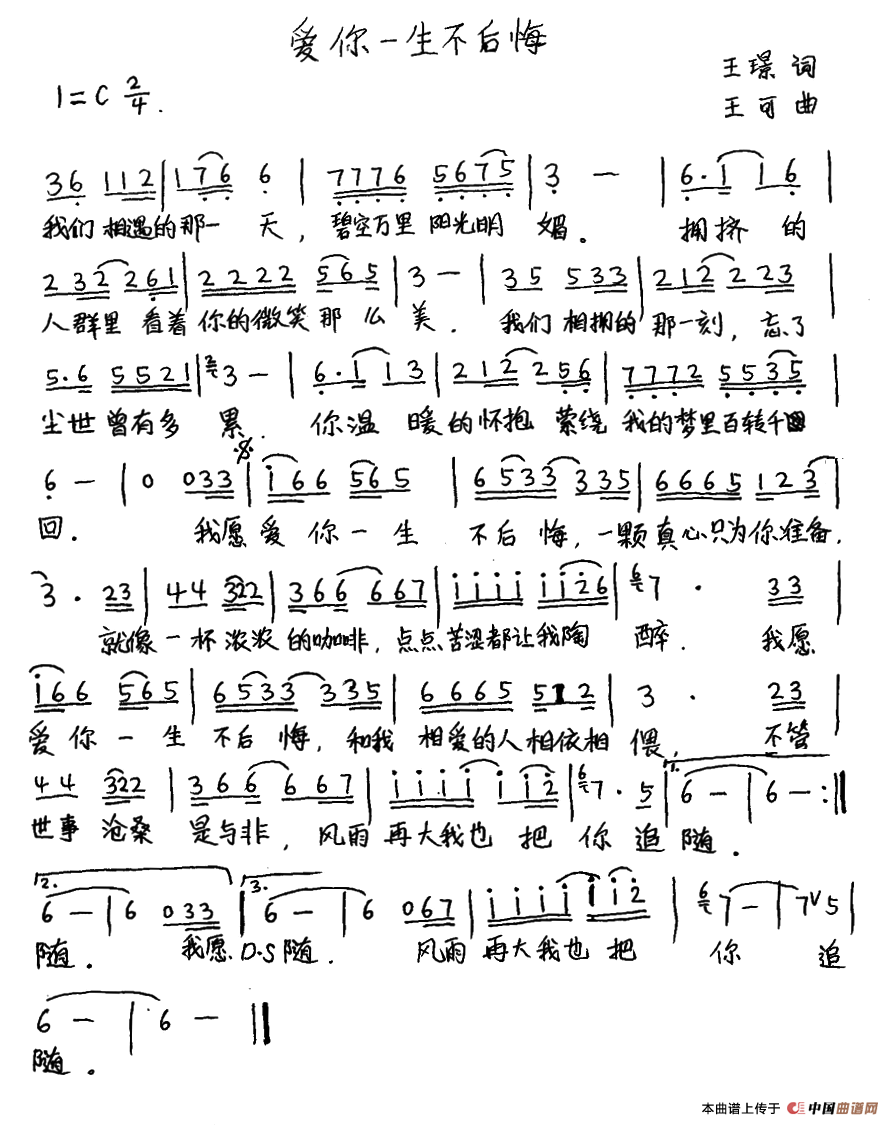 爱你一生不后悔
王璟 词
1=C 2/4.
王可曲
36 112|176 6|7776 5675|3 —|6·1 16|
我们相遇的那一天，碧空万里阳光明媚．拥挤的
232 261|2222 565|3 —|35 533|212 223|
人群里看着你的微笑那么美．我们相拥的那一刻，忘了
5·6 5521|3 —|6·1 13|212 256|7772 5535|
尘世曾有多累．你温暖的怀抱萦绕我的梦里百转千
6 —|0 033|i66 565|6533 335|6665 123|
回．我愿爱你一生不后悔，一颗真心只为你准备．
3· 23|44 322|366 667|iiii ii26|7· 33|
就像一杯浓浓的咖啡，点点苦涩都让我陶醉．我愿
i66 565|6533 335|6665 512|3· 23|
爱你一生不后悔，和我相爱的人相依相偎，不管
44 322|366 667|iiii ii2|7·5|1. 6 —|6 —:‖
世事沧桑是与非，风雨再大我也把你追随．
2. 6 —|6 033‖3. 6 —|6 067|iiii ii2|7 —|7∨5|
随．我愿 D.S随．风雨再大我也把你追
6 —|6 —‖
随．
本曲谱上传于 中国曲谱网